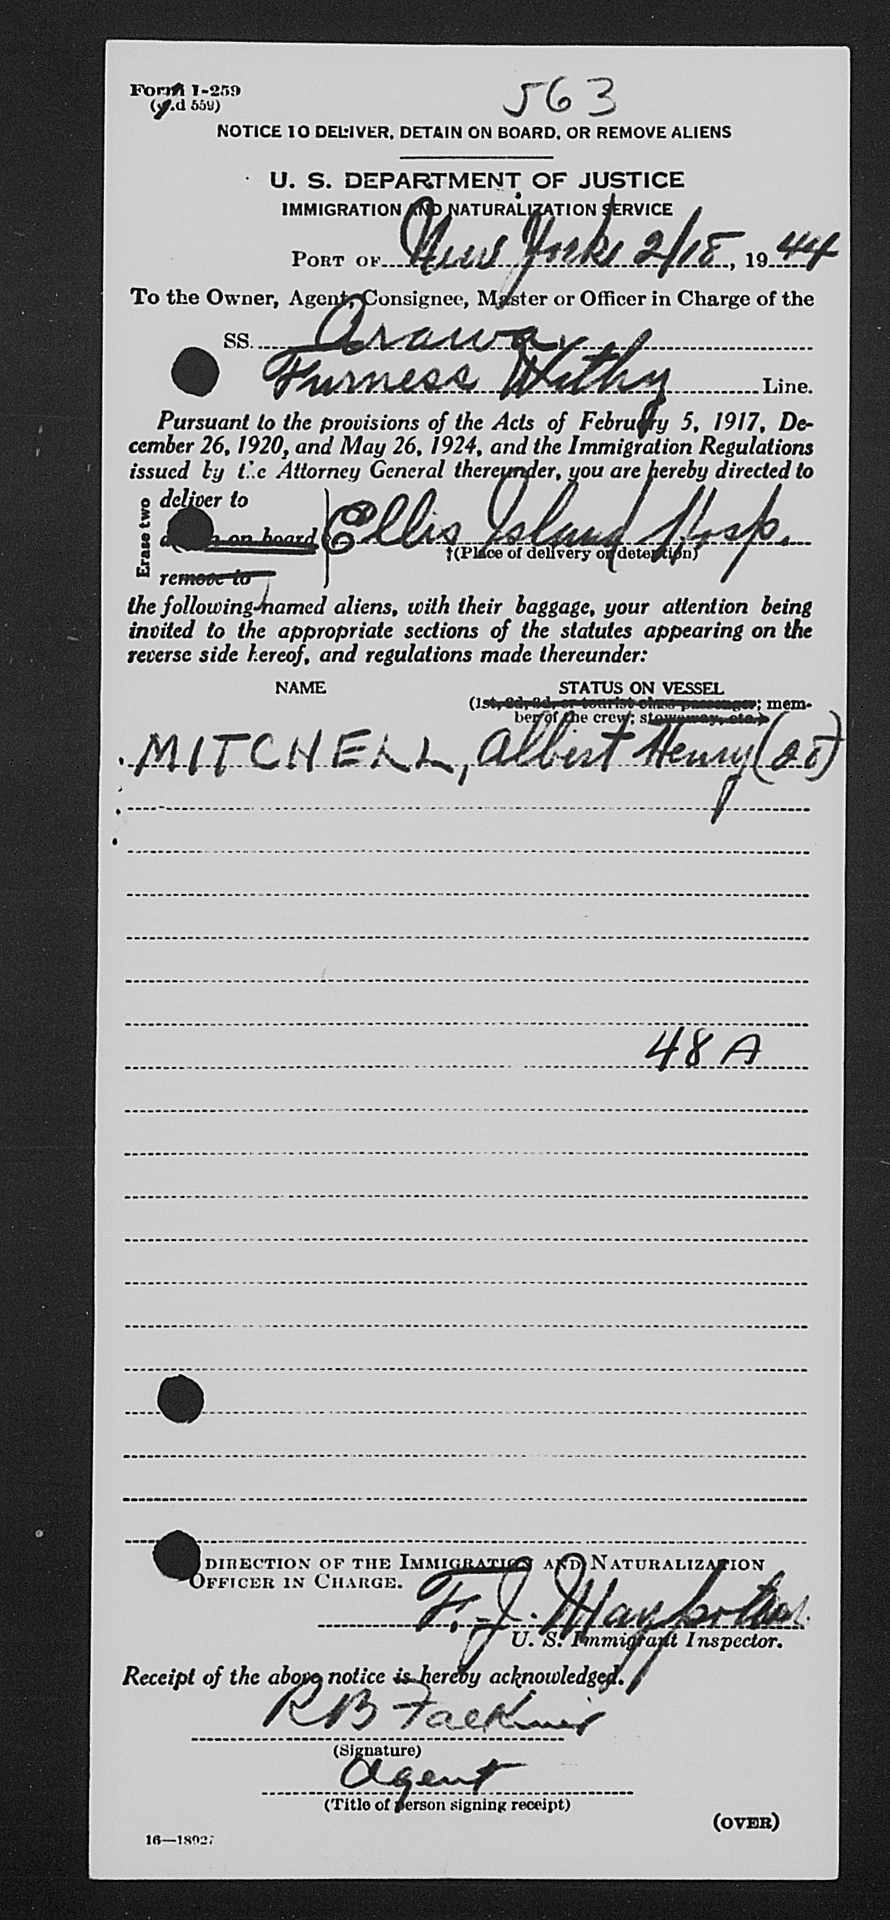 Form I-259
563
NOTICE TO DELIVER, DETAIN ON BOARD, OR REMOVE ALIENS
U. S. DEPARTMENT OF JUSTICE
IMMIGRATION AND NATURALIZATION SERVICE
PORT OF New York 2/18, 1944
To the Owner, Agent, Consignee, Master or Officer in Charge of the
SS. Arawa
Furness Withy Line.
Pursuant to the provisions of the Acts of February 5, 1917, De-
cember 26, 1920, and May 26, 1924, and the Immigration Regulations
issued by the Attorney General thereunder, you are hereby directed to
Erase two
deliver to
on board Ellis Island Hosp.
†(Place of delivery or detention)
remove to
the following-named aliens, with their baggage, your attention being
invited to the appropriate sections of the statutes appearing on the
reverse side hereof, and regulations made thereunder:
NAME STATUS ON VESSEL
(1st, 2d, 3d, or tourist class passenger; mem-
ber of the crew; stowaway, etc.)
MITCHELL, Albert Henry (20)
48 A
DIRECTION OF THE IMMIGRATION AND NATURALIZATION
OFFICER IN CHARGE.
F. J.
U. S. Immigrant Inspector.
Receipt of the above notice is hereby acknowledged.
R B
(Signature)
Agent
(Title of person signing receipt)
(OVER)
16—18927